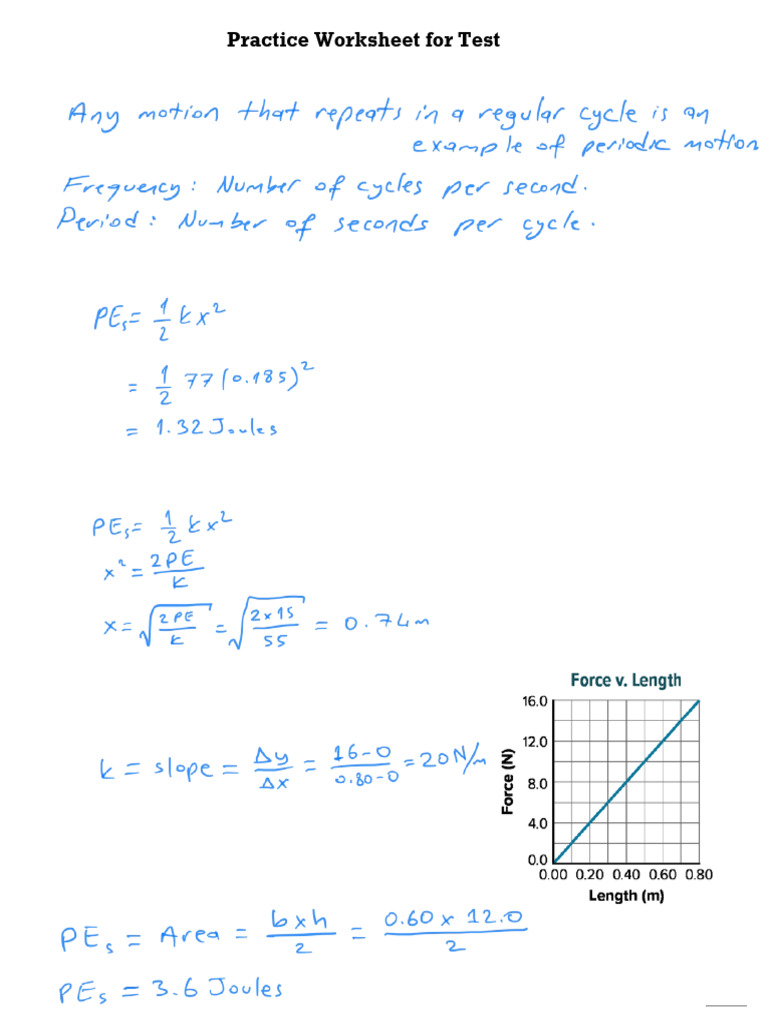 Practice Worksheet for Test
Any motion that repeats in a regular cycle is an
example of periodic motion
Frequency: Number of cycles per second.
Period: Number of seconds per cycle.
PEs = 1/2 kx²
= 1/2 77(0.185)²
= 1.32 Joules
PEs = 1/2 kx²
x² = 2PE/k
x = √(2PE/k) = √(2x15/55) = 0.74m
Force v. Length
16.0
12.0
8.0
4.0
0.0
Force (N)
0.00 0.20 0.40 0.60 0.80
Length (m)
k = slope = Δy/Δx = 16-0/0.80-0 = 20 N/m
PEs = Area = bxh/2 = 0.60 x 12.0/2
PEs = 3.6 Joules